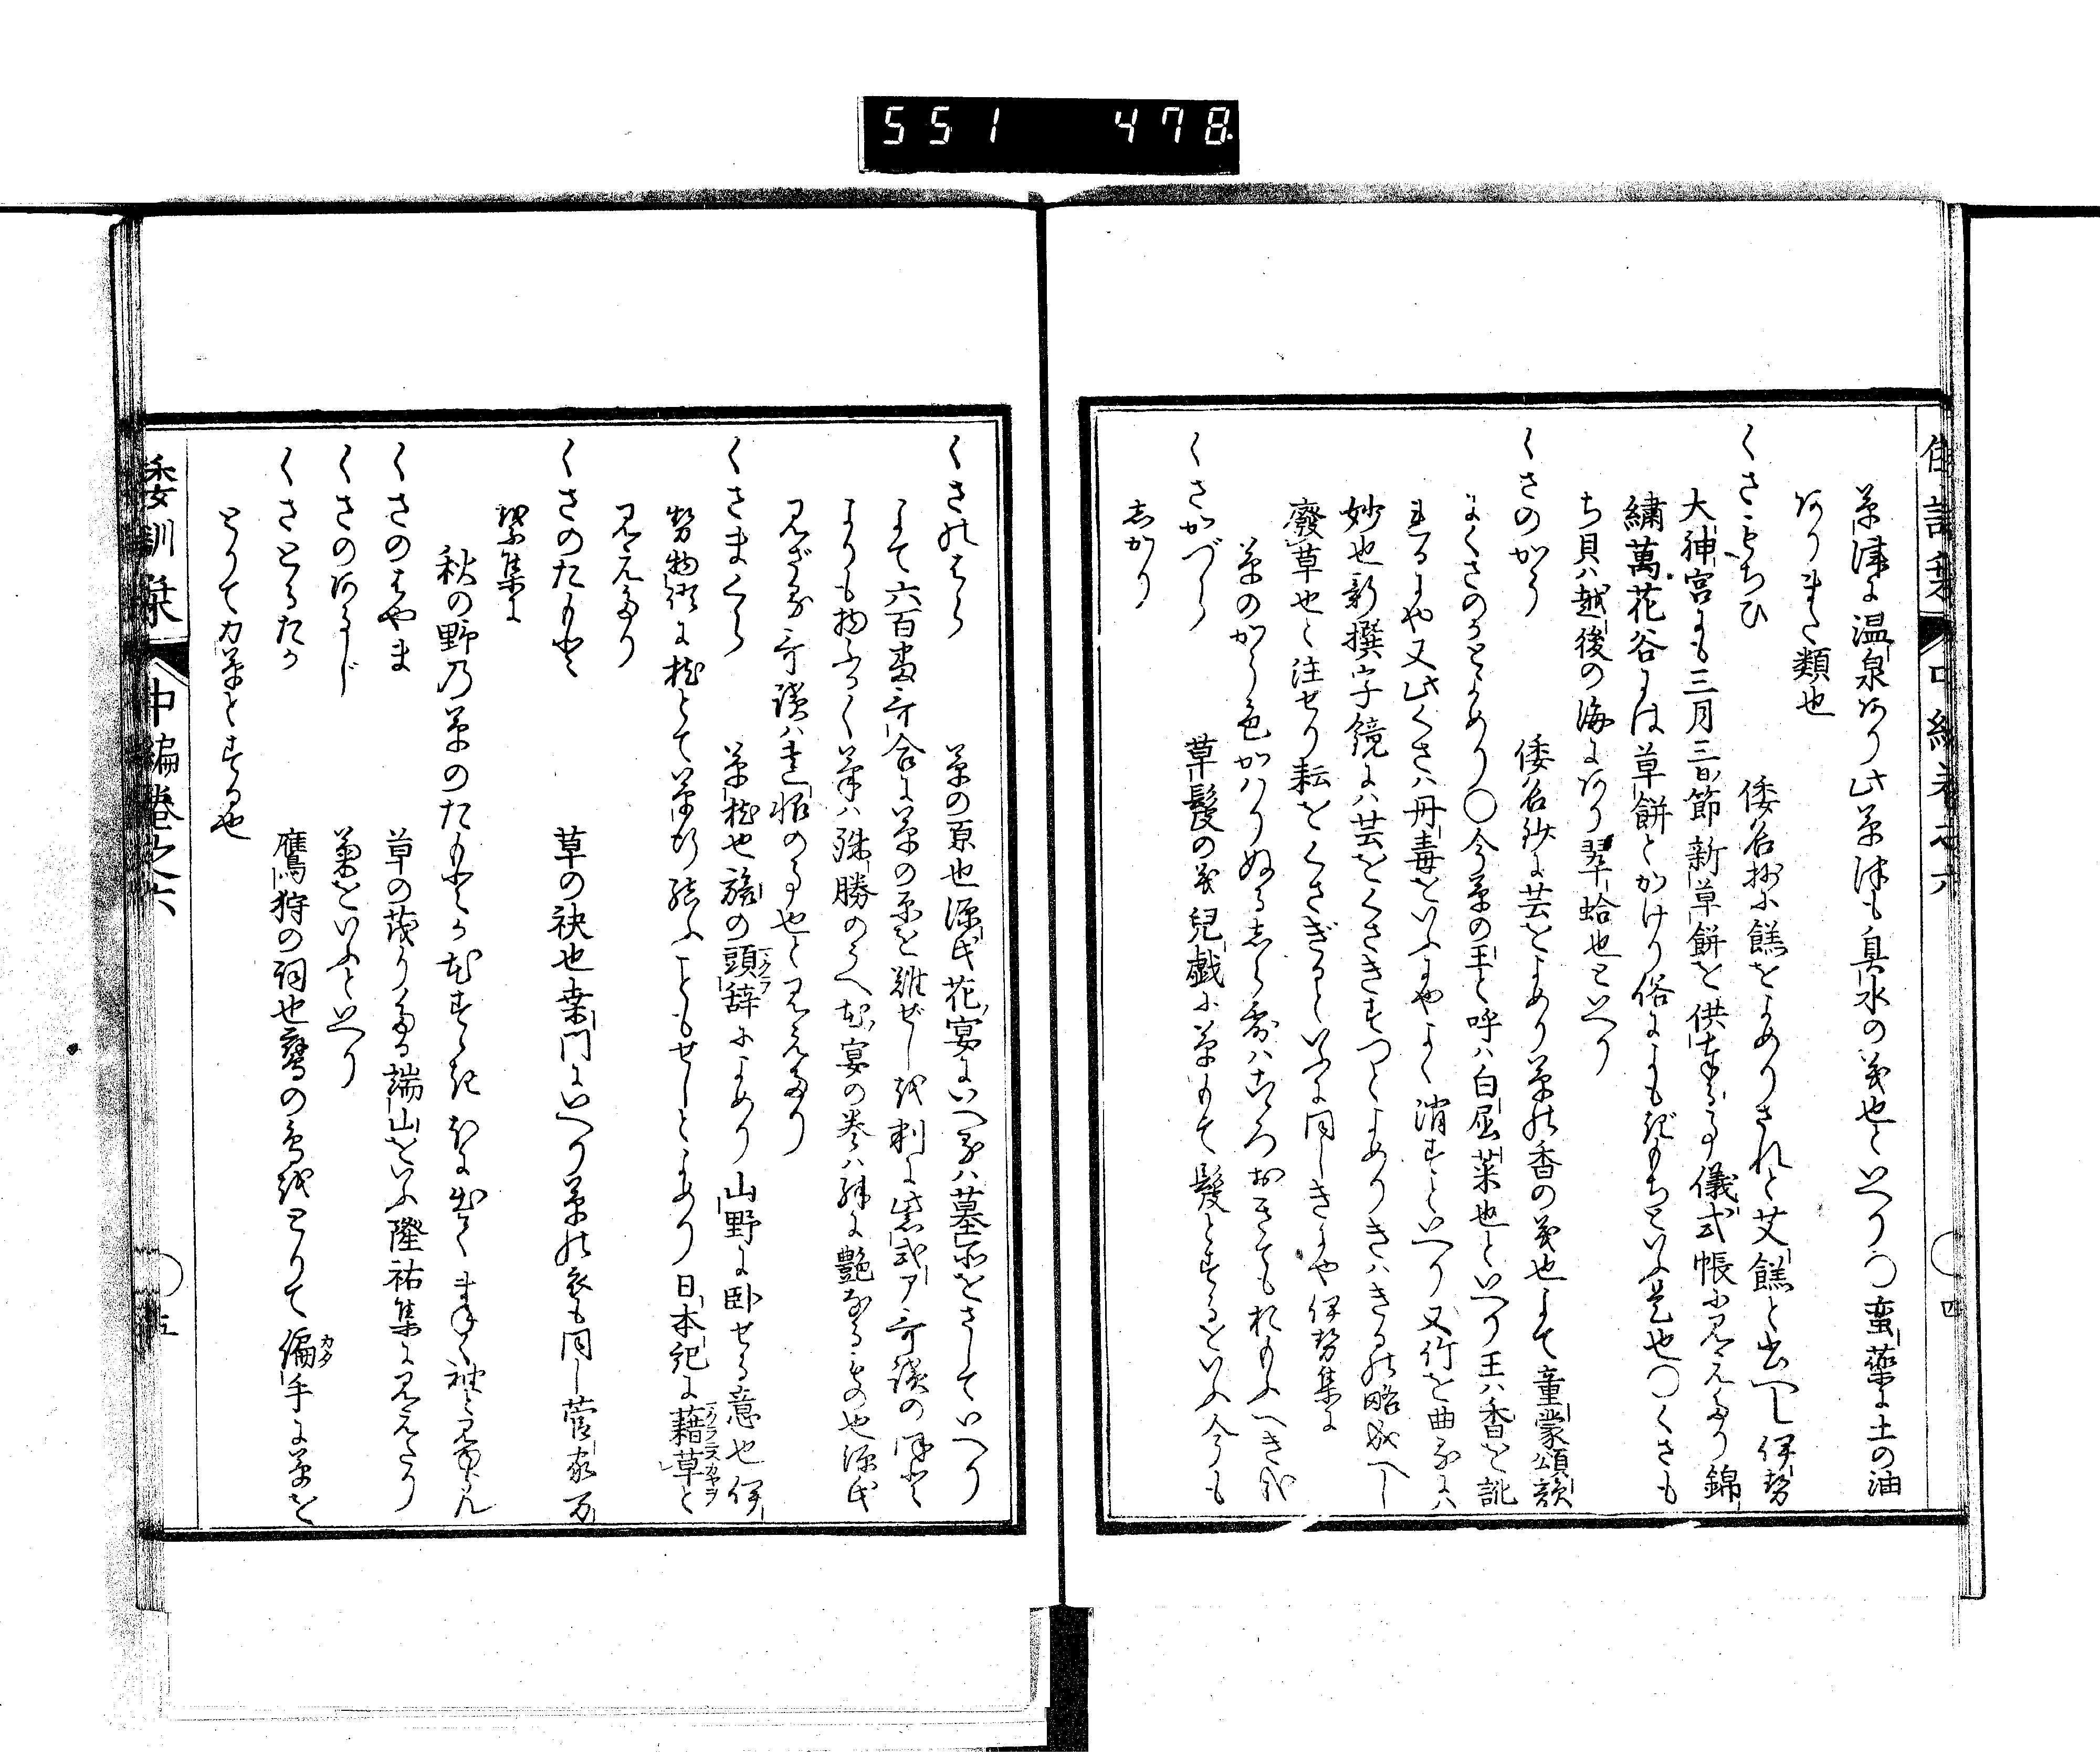 551 478
草津に温泉あり此草津も臭水の義也といへり○蛮藥に土の油
あり其類也
くさもちひ 倭名抄に餻をよめりされと艾餻と出へし伊勢
大神宮にも三月三日節新草餅を供奉る事儀式帳に見えたり錦
繍萬花谷には草餅とかけり俗によもぎもちといふ是也○くさも
ち貝ハ越後の海にあり翠蛤也といへり
くさのかう 倭名鈔に芸をよめり草の香の義也よて童蒙頌韻
にくさのかとよめり○今草の王と呼ハ白屈菜也といへり王ハ香を訛
れるにや又此くさハ丹毒をいふにやよく消すといへり又竹を曲るにハ
妙也新撰字鏡にハ芸をくさきすつとよめりきハきるの略成へし
廢草也と注せり耘をくさぎるといふに同しきにや伊勢集に
草のかう色かハりぬるしら露ハこゝろおきてもおもふへき哉
くさかづら 草鬘の義兒戯に草もて鬘とするをいふ今も
しかり
倭訓栞 中編巻之六 ○四
くさのはら 草の原也源氏花宴にいへるハ墓所をさしていへり
よて六百番哥合に草の原を難ぜしを判に紫式ア哥讀の程
よりも物ふかく筆ハ殊勝のうへ花宴の巻ハ殊に艶なるもの也源氏
見ざる哥讀ハ遺恨の事也と見えたり
くさまくら 草枕也旅の頭辞によめり山野に卧せる意也伊
勢物語に枕とて草ひき結ふこともせしとよめり日本記に藉草と
見えたり
くさのたもと 草の袂也桒門にいへり草の衣も同し菅家万
葉集に
秋の野乃草のたもとか花すゝきほに出てまねく袖と見ゆらん
くさのはやま 草の茂りたる端山をいふ隆祐集に見えたり
くさのあるじ 菊をいふといへり
くさとるたか 鷹狩の詞也鷹の鳥をとりて偏手に草を
とりて力草とする也
倭訓栞 中編巻之六 ○五